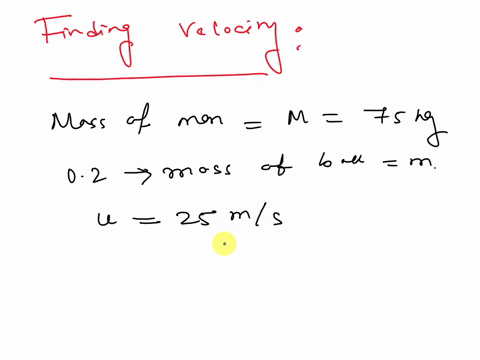 Finding Velocity:
Mass of man = M = 75 kg
0.2 → mass of ball = m.
u = 25 m/s